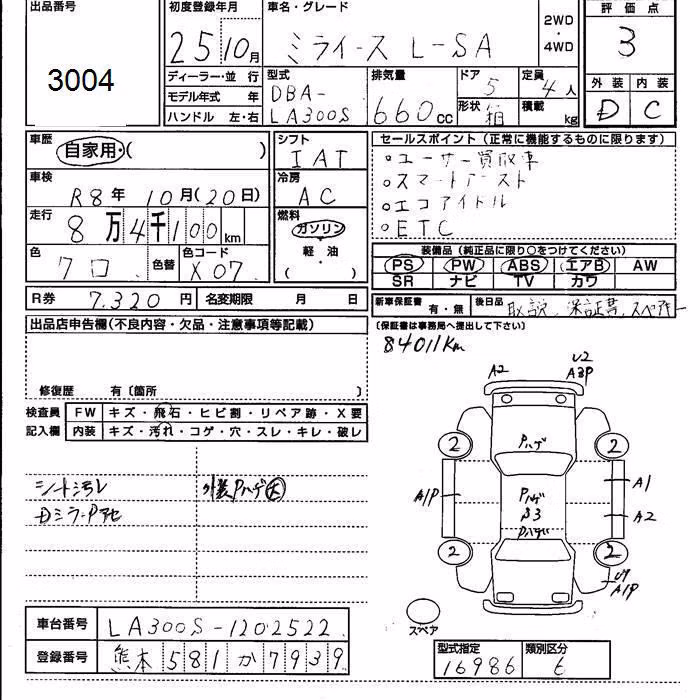 出品番号
3004
初度登録年月
25 10月
車名・グレード
ミライース L-SA
2WD
・
4WD
評価点
3
ディーラー・並 行
モデル年式 年
ハンドル 左・右
型式
DBA-
LA300S
排気量
660cc
ドア 5
形状 箱
定員 4人
積載 kg
外装 内装
D C
車歴
自家用・( )
車検
R8年 10月(20日)
走行
8万4千100km
色
クロ
色替
色コード
X07
シフト
IAT
冷房
AC
燃料
ガソリン
・
軽 油
( )
セールスポイント(正常に機能するものに限ります)
○ユーザー買取車
○スマートアシスト
○エコアイドル
○ETC
装備品(純正品に限り○をつけてください)
PS PW ABS エアB AW
SR ナビ TV カワ
R券 7.320円 名変期限 月 日
新車保証書 有・無 後日品 取説、保証書、スペアキー
(保証書は事務局へ提出して下さい)
84011km
出品店申告欄(不良内容・欠品・注意事項等記載)
修復歴 有〔箇所 〕
検査員 FW キズ・飛石・ヒビ割・リペア跡・X要
記入欄 内装 キズ・汚れ・コゲ・穴・スレ・キレ・破レ
シート汚レ
外装Pハゲ大
DミラーPアセ
A2
U2
A3P
Pハゲ
2 2
Pハゲ
B3
Pハゲ
A1P
A1
A2
2 2
U9
A1P
スペア
車台番号 LA300S-1202522
登録番号 熊本581か7939
型式指定 類別区分
16986 6